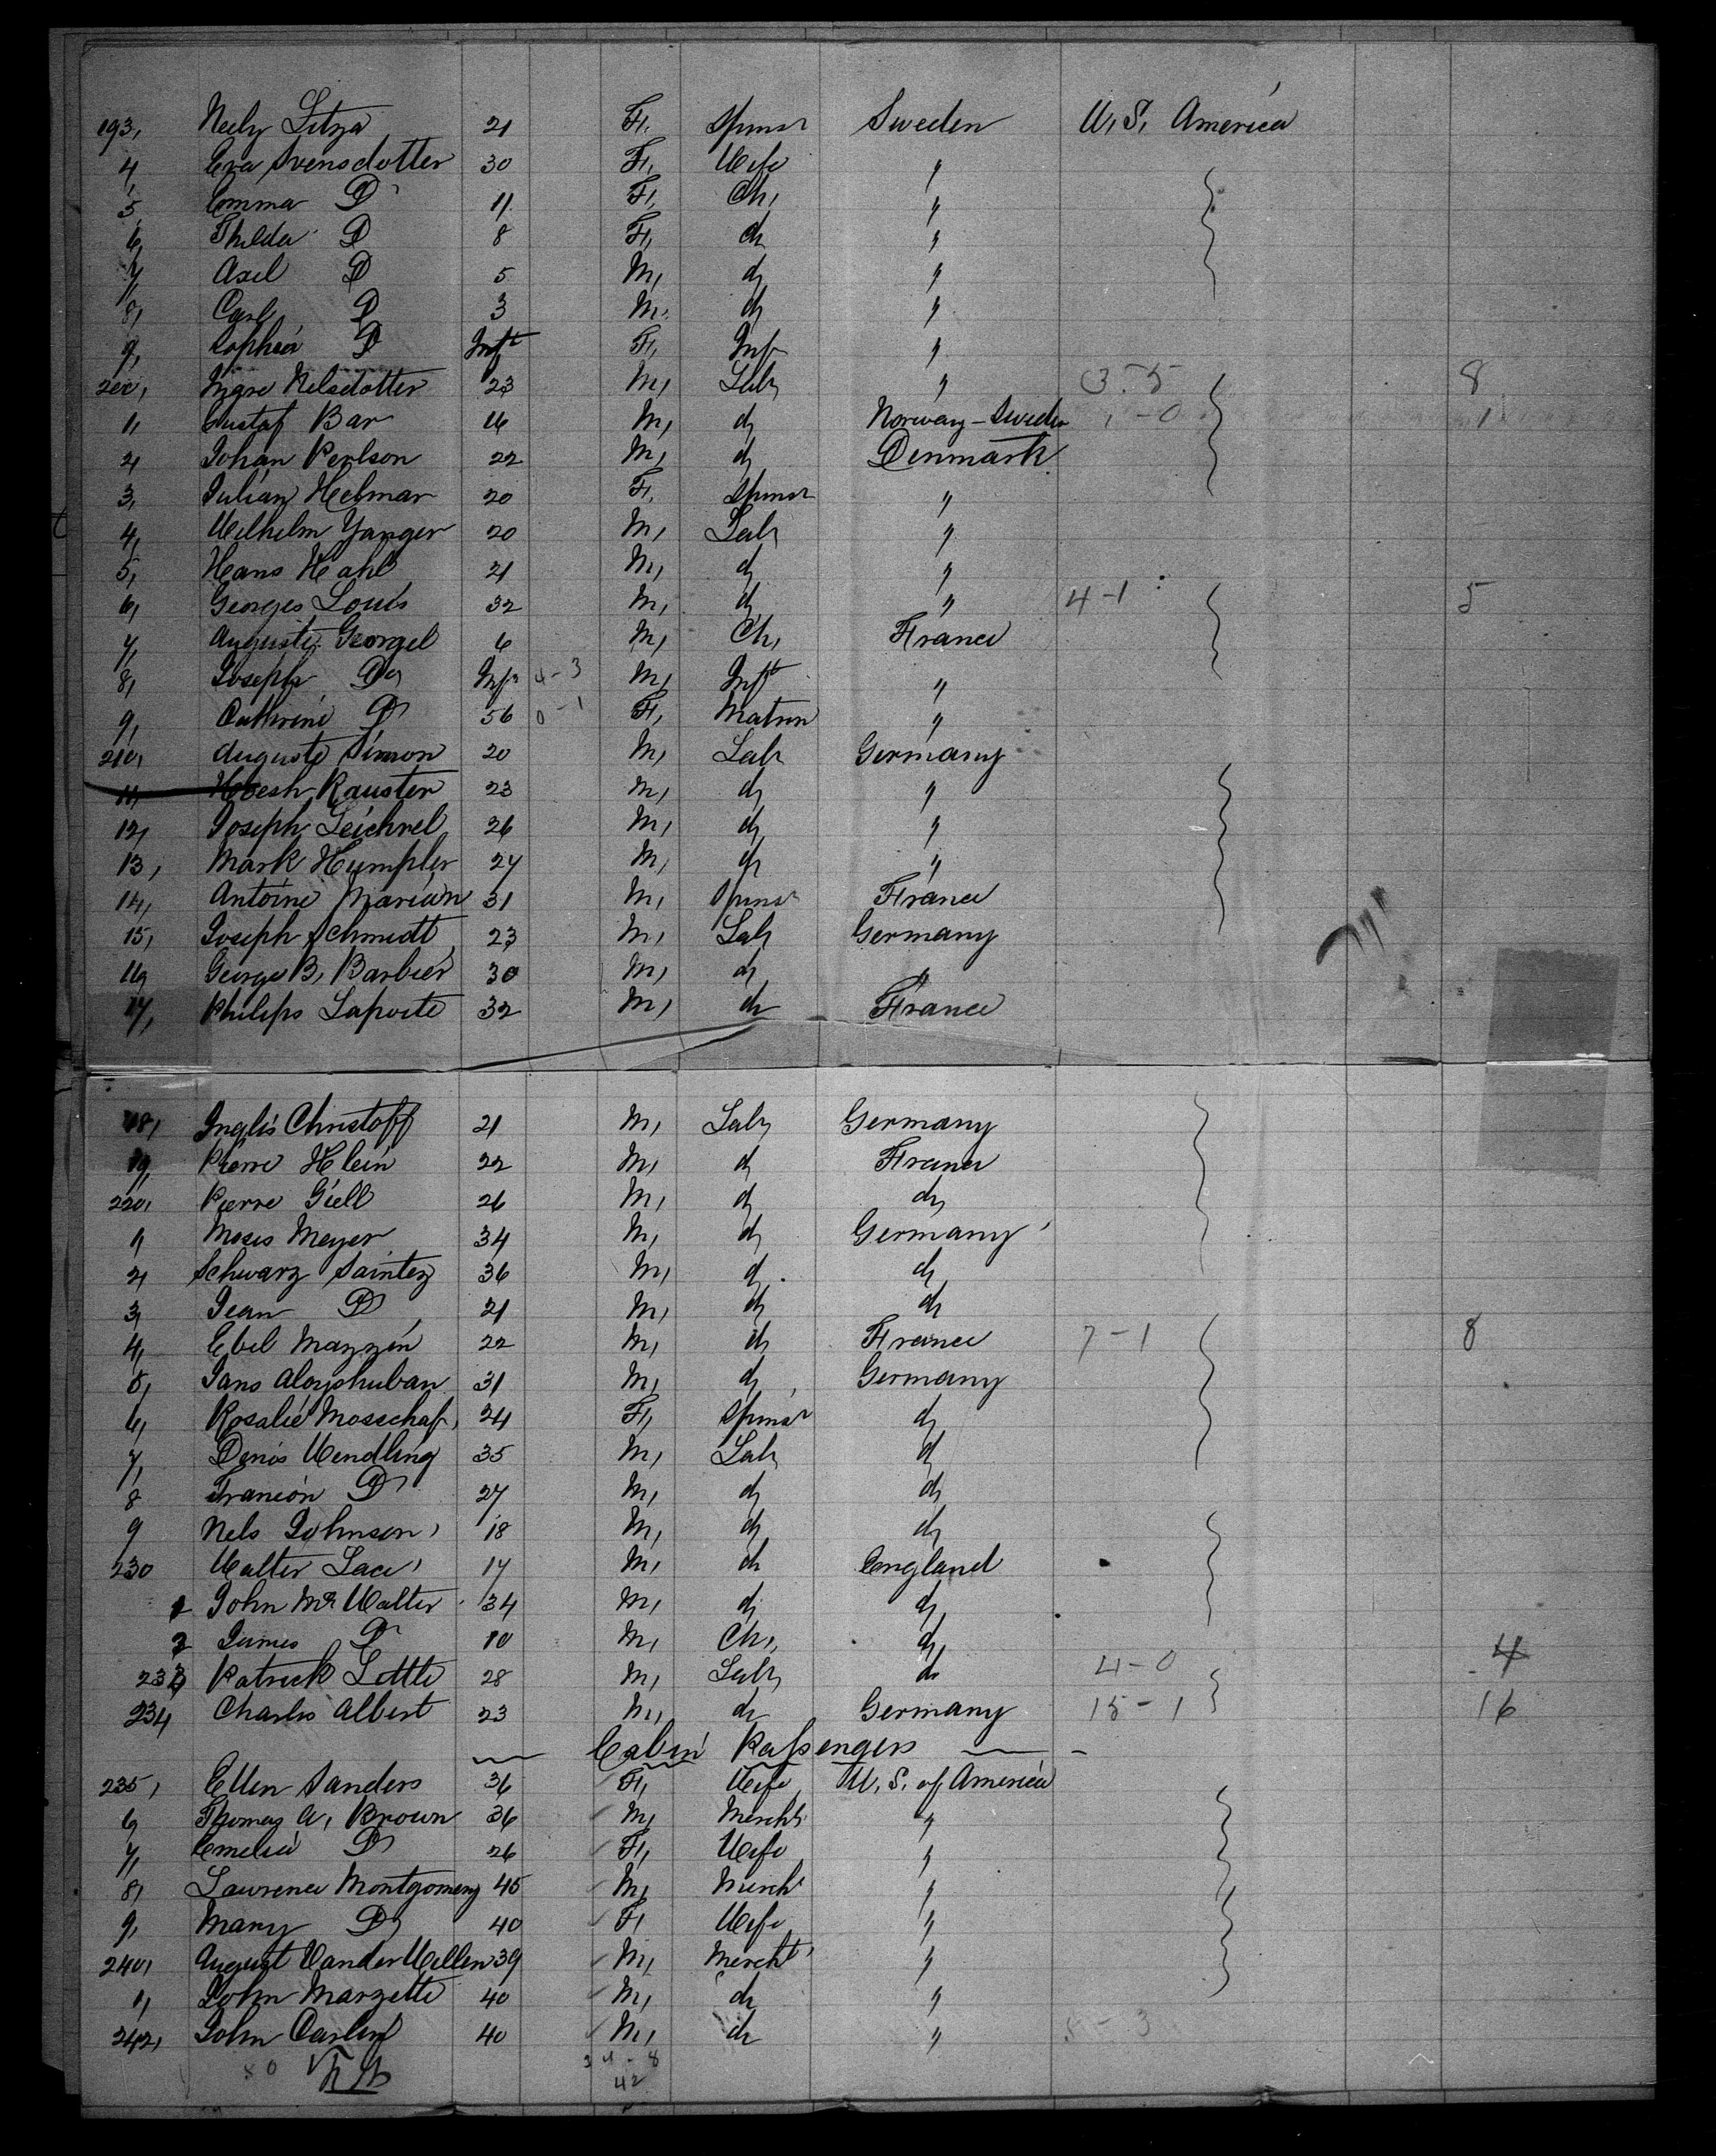 193, Nely Litza 21 F, Spinsr Sweden U, S, America
4, Eva Svensdotter 30 F, Wife "
5, Emma D 11 F, Ch, "
6, Thilda D 8 F, do "
7, Axel D 5 M, do "
8, Carl D 3 M, do "
9, Sophia D Inft F, Inf "
200, Ingre Nelsdotter 23 M, Lab, " 3-5 8
1, Gustaf Bar 16 M, do Norway-Sweden 1-0 1
2, Johan Perlson 22 M, do Denmark
3, Julian Helmar 20 F, Spinsr "
4, Wilhelm Yanger 20 M, Lab, "
5, Hans Hahl 21 M, do "
6, Georges Louis 32 M, do " 4-1 5
7, Auguste Georgel 6 M, Ch, France
8, Joseph Do Inft 4-3 M, Inft "
9, Cathrine D 56 0-1 F, Matron "
210, Auguste Simon 20 M, Lab Germany
11, Rauster 23 M, do "
12, Joseph Leichnel 26 M, do "
13, Mark Humpler 27 M, do "
14, Antoine Marian 31 M, Spinsr France
15, Joseph Schmidt 23 M, Lab Germany
16, George B, Barbier 30 M, do "
17, Philips Lapoite 32 M, do France
18, Inglis Christoff 21 M, Lab, Germany
19, Pierre Hlein 22 M, do France
220, Pierre Giell 26 M, do do
1, Moses Meyer 34 M, do Germany
2, Schwarz Saintez 36 M, do do
3, Jean D 21 M, do do
4, Ebel Mazzin 22 M, do France 7-1 8
5, Jans Aloyshuban 31 M, do Germany
6, Rosalie Mosschaf, 24 F, Spinsr do
7, Denis Wendling 35 M, Lab, do
8 Francon D 27 M, do do
9 Nels Johnson, 18 M, do do
230 Walter Lace, 17 M, do England
1 John McWalter 34 M, do do
2 James D 10 M, Ch, do
233 Patrick Little 28 M, Lab, do 4-0 4
234 Charles Albert 23 M, do Germany 15-1 16
Cabin Passengers
235, Ellen Sanders 36 F, Wife U. S. of America
6, Thomas A, Brown 36 M, Mercht "
7, Emelia D 26 F, Wife "
8, Lawrence Montgomery 45 M, Mercht "
9, Mary Do 40 F, Wife "
240, August Vander Wellen 39 M, Mercht "
1, John Marzette 40 M, do "
242, John Carling 40 M, do " 8-3
80 34-8
42